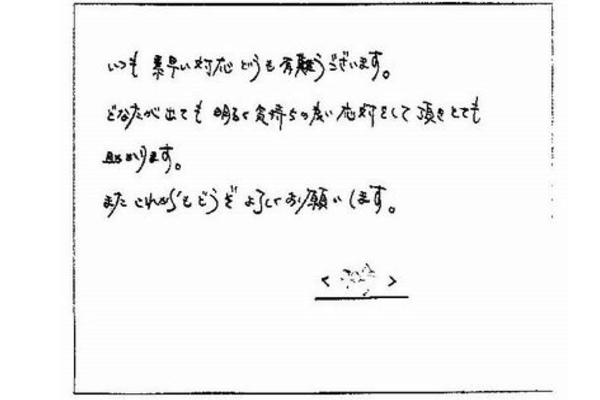 いつも 素早い対応 どうも 有難うございます。
どなたが出ても 明るく気持ちの良い 応対をして頂きとても
助かります。
また これからもどうぞ よろしくお願いします。
< >